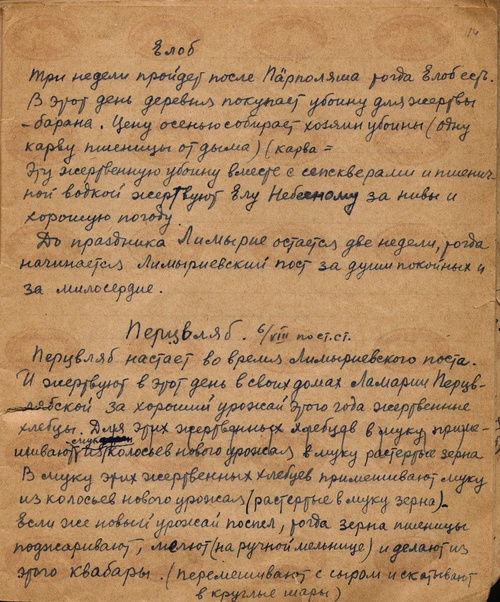 14
Елоб
Три недели пройдет после Пӓрполяша тогда Елоб есть.
В этот день деревня покупает убоину для жертвы
-барана. Цену осенью собирает хозяин убоины (одну
карву пшеницы от дыма) (карва =
Эту жертвенную убоину вместе с сепскверами и пшенич-
ной водкой жертвуют Елу Небесному за нивы и
хорошую погоду.
До праздника Лимырие остается две недели, тогда
начинается Лимыриевский пост за души покойных и
за милосердие.
Перцвляб. 6/VIII по ст. ст.
Перцвляб настает во время Лимыриевского поста.
И жертвуют в этот день в своих домах Ламарии Перцв-
лябской за хороший урожай этого года жертвенные
хлебцы. Для этих жертвенных хлебцев в муку приме-
шивают муку из колосьев нового урожая в муку растертые зерна
В муку этих жертвенных хлебцев примешивают муку
из колосьев нового урожая (растертые в муку зерна).
Если же новый урожай поспел, тогда зерна пшеницы
поджаривают, мелют (на ручной мельнице) и делают из
этого квабары. (перемешивают с сыром и скатывают
в круглые шары)